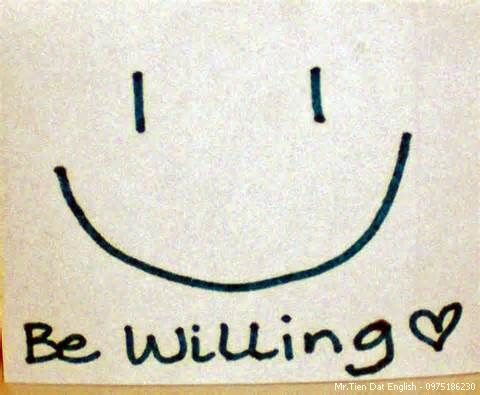 Be Willing
Mr.Tien Dat English - 0975186230